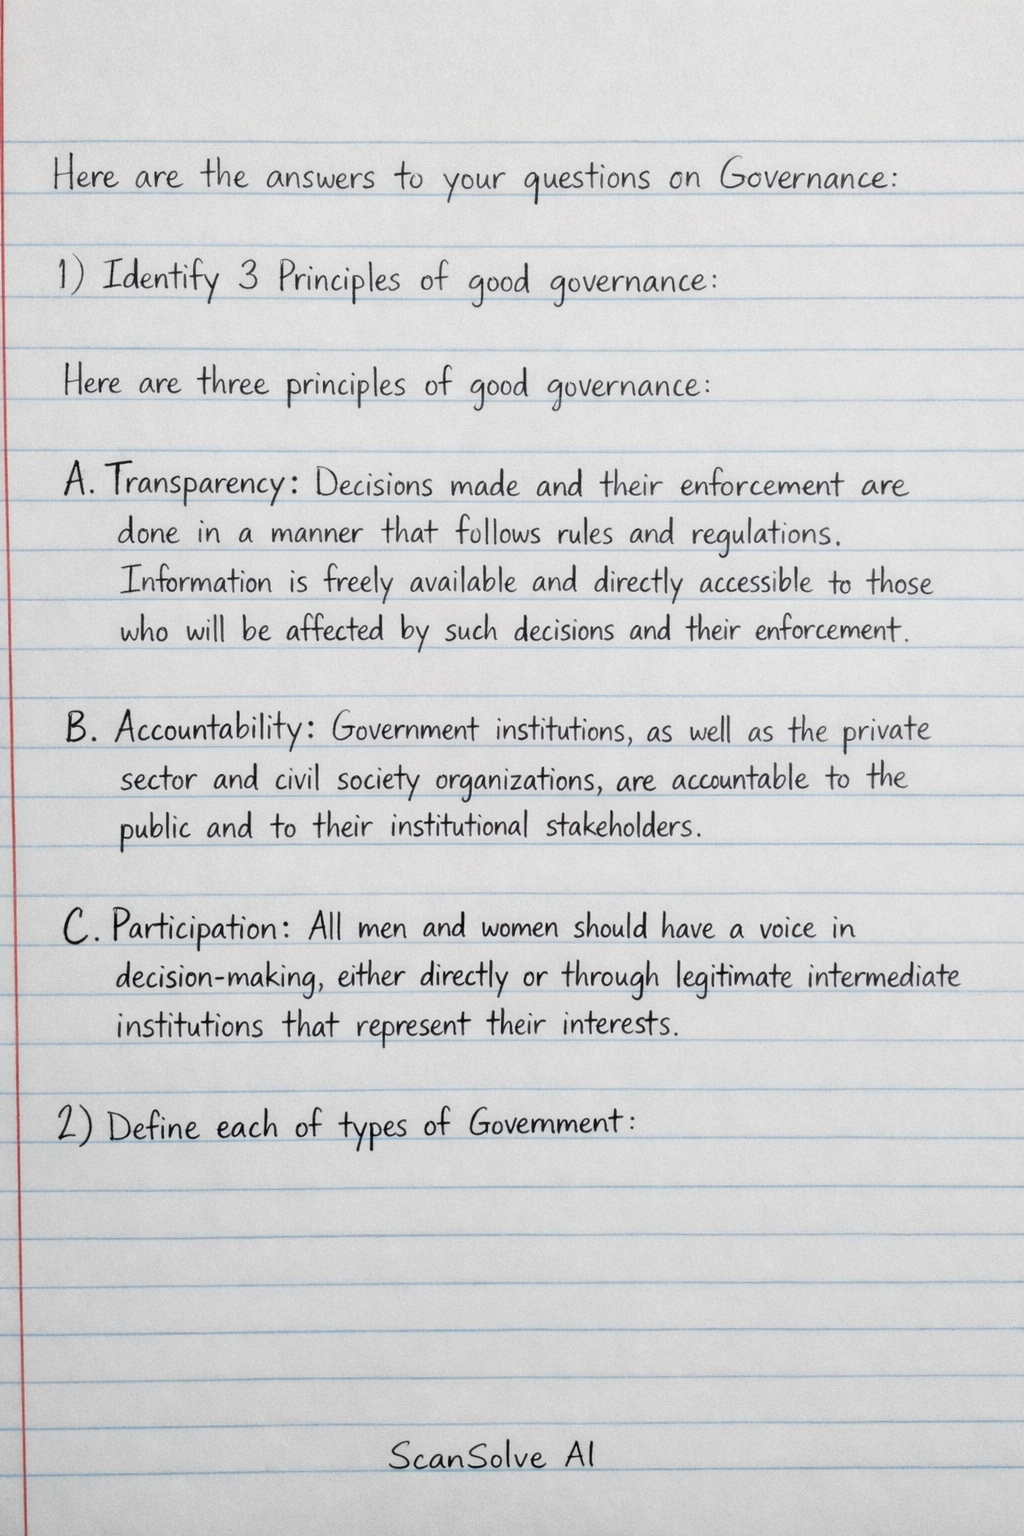 Here are the answers to your questions on Governance:
1) Identify 3 Principles of good governance:
Here are three principles of good governance:
A. Transparency: Decisions made and their enforcement are
done in a manner that follows rules and regulations.
Information is freely available and directly accessible to those
who will be affected by such decisions and their enforcement.
B. Accountability: Government institutions, as well as the private
sector and civil society organizations, are accountable to the
public and to their institutional stakeholders.
C. Participation: All men and women should have a voice in
decision-making, either directly or through legitimate intermediate
institutions that represent their interests.
2) Define each of types of Government:
ScanSolve AI